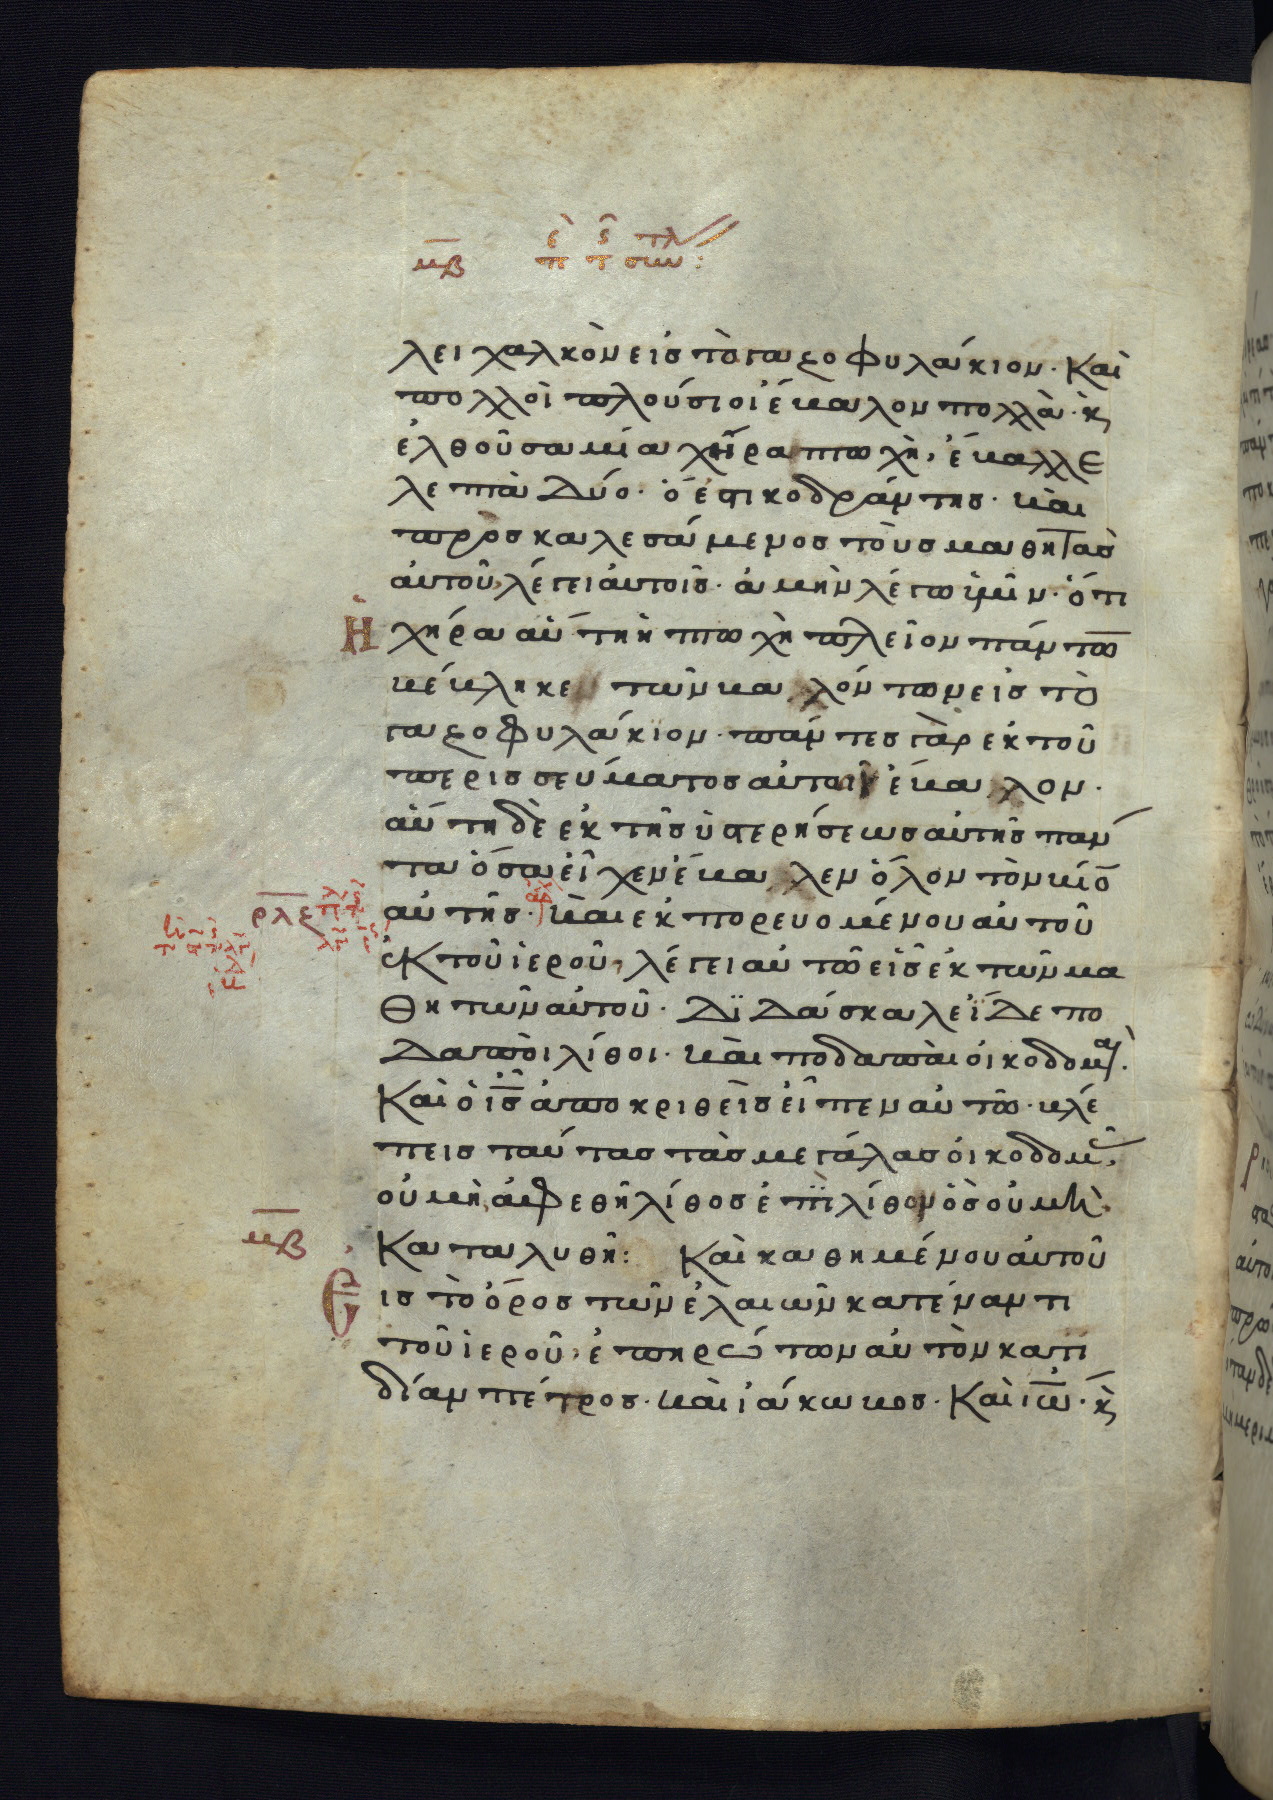 μβ
λει χαλκὸν εἰσ τὸ γαζοφυλάκιον· Καὶ
πολλοὶ πλούσιοι ἔβαλον πολλὰ· κ
ἐλθοῦσα μία χήρα πτωχὴ, ἔβαλλε
λεπτὰ δύο· ὅ ἐστι κοδράντησ· καὶ
προσκαλεσάμενοσ τοὺσ μαθητὰσ
αὐτοῦ, λέγει αὐτοῖσ· ἀμὴν λέγω ὑμῖν· ὅτι
Ἡ χήρα αὕτη ἡ πτωχὴ πλεῖον πάντω
βέβληκε τῶν βαλόντων εἰσ τὸ
γαζοφυλάκιον· πάντεσ γὰρ ἐκ τοῦ
περισσεύματοσ αὐτοῖσ ἔβαλον·
αὕτη δὲ ἐκ τῆσ ὑστερήσεωσ αὐτῆσ πάν
τα ὅσα εἶχεν ἔβαλεν ὅλον τὸν βίο
ρλε αὐτῆσ· Καὶ ἐκπορευομένου αὐτοῦ
ἐκ τοῦ ἱεροῦ, λέγει αὐτῶ εἷσ ἐκ τῶν μα
θητῶν αὐτοῦ· Διδάσκαλε ἴδε πο
δαποὶ λίθοι· καὶ ποδαπαὶ οἰκοδομαὶ·
Καὶ ὁ ισ ἀποκριθεὶσ εἶπεν αὐτῶ· βλέ
πεισ ταύτασ τὰσ μεγάλασ οἰκοδομ
οὐ μὴ ἀφεθῆ λίθοσ ἐπὶ λίθον ὃσ οὐ μὴ
μβ
καταλυθῆ: Καὶ καθημένου αὐτοῦ
Εἰσ τὸ ὄροσ τῶν ἐλαιῶν κατέναντι
τοῦ ἱεροῦ, ἐπηρώτων αὐτὸν κατι
δίαν πέτροσ· καὶ ἰάκωβοσ· Καὶ ιω· κ